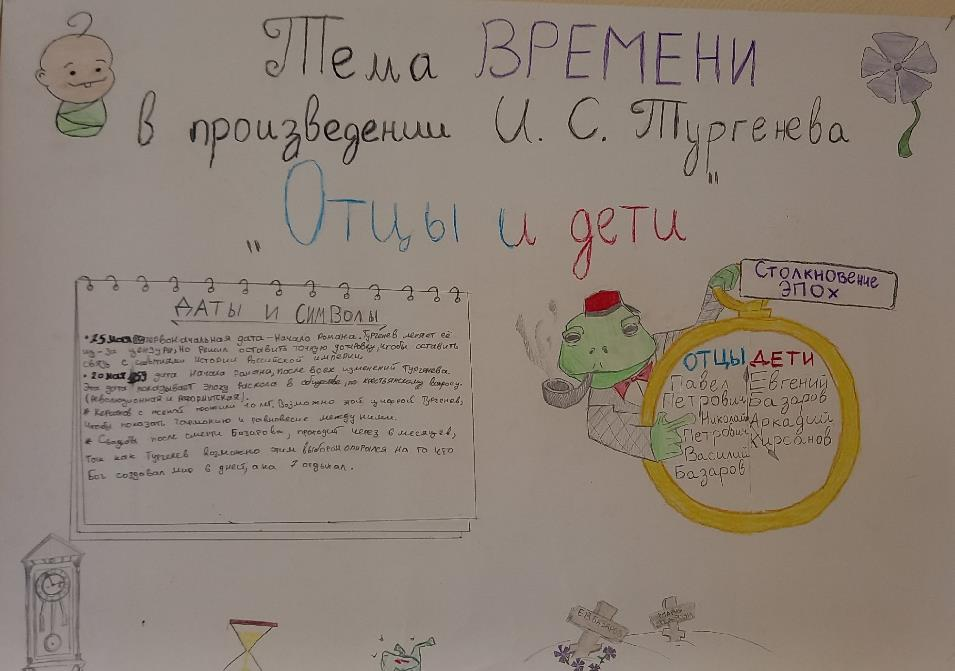 Тема ВРЕМЕНИ
в произведении И. С. Тургенева
"Отцы и дети"
ДАТЫ И СИМВОЛЫ
• 25 мая 59 первоначальная дата-начало романа. Тургенев меняет её
из-за цензуры, но решил оставить точную установку, чтобы оставить
связь с событиями истории Российской империи.
• 20 мая 59 дата начала романа, после всех изменений Тургенева.
Эта дата показывает эпоху раскола в обществе, по крестьянскому вопросу.
(революционная и реформистская).
* Кирсанов с женой прожили 10 лет. Возможно этой цифрой Тургенев,
чтобы показать гармонию и равновесие между ними.
* Свадьба после смерти Базарова, проходит через 6 месяцев,
Так как Тургенев возможно этим выбором опирался на то что
Бог создавал мир 6 дней, а на 7 отдыхал.
Столкновение
ЭПОХ
ОТЦЫ ДЕТИ
Павел Евгений
Петрович Базаров
Николай Аркадий
Петрович Кирсанов
Василий
Базаров
Е.В. БАЗАРОВ